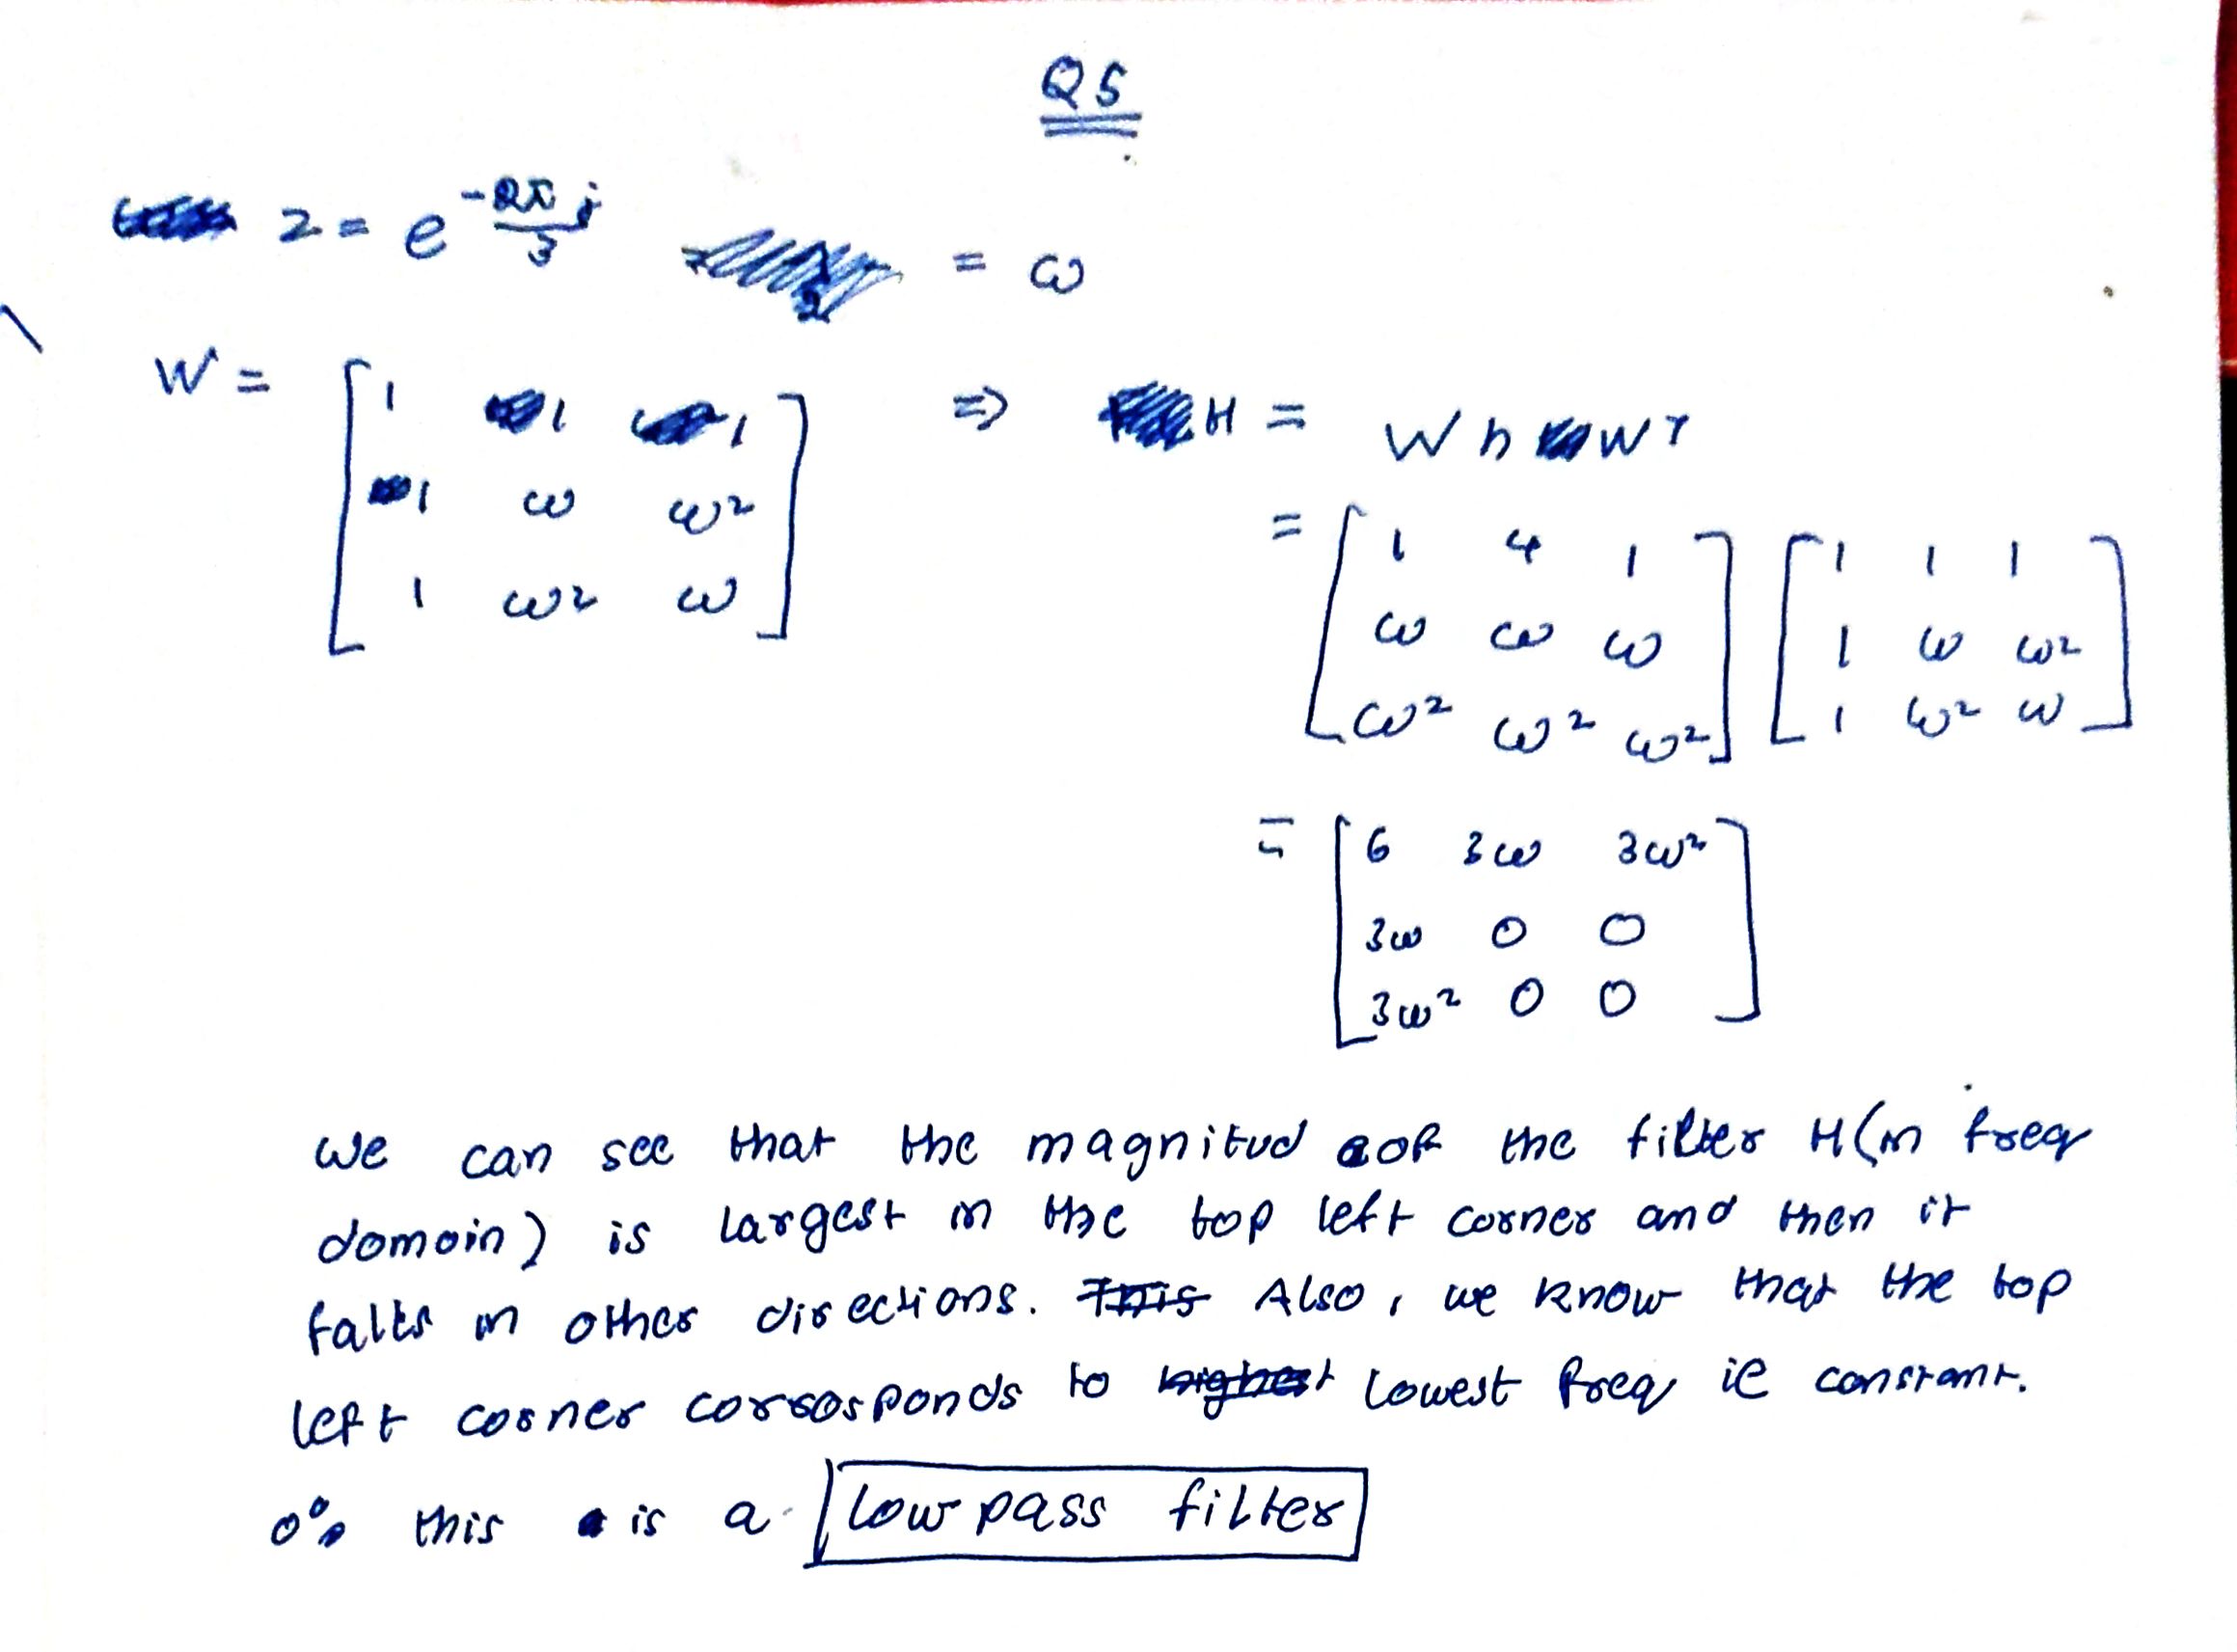 Q5
z = e^{-2π/3 j} = ω
W = [ 1 1 1 ; 1 ω ω² ; 1 ω² ω ] ⇒ H = W h Wᵀ
= [ 1 4 1 ; ω ω ω ; ω² ω² ω² ] [ 1 1 1 ; 1 ω ω² ; 1 ω² ω ]
= [ 6 3ω 3ω² ; 3ω 0 0 ; 3ω² 0 0 ]
we can see that the magnitud of the filter H(in freq
domain) is largest in the top left corner and then it
falls in other directions. This Also, we know that the top
left corner corrosponds to highest lowest freq ie constant.
∴ this is a low pass filter